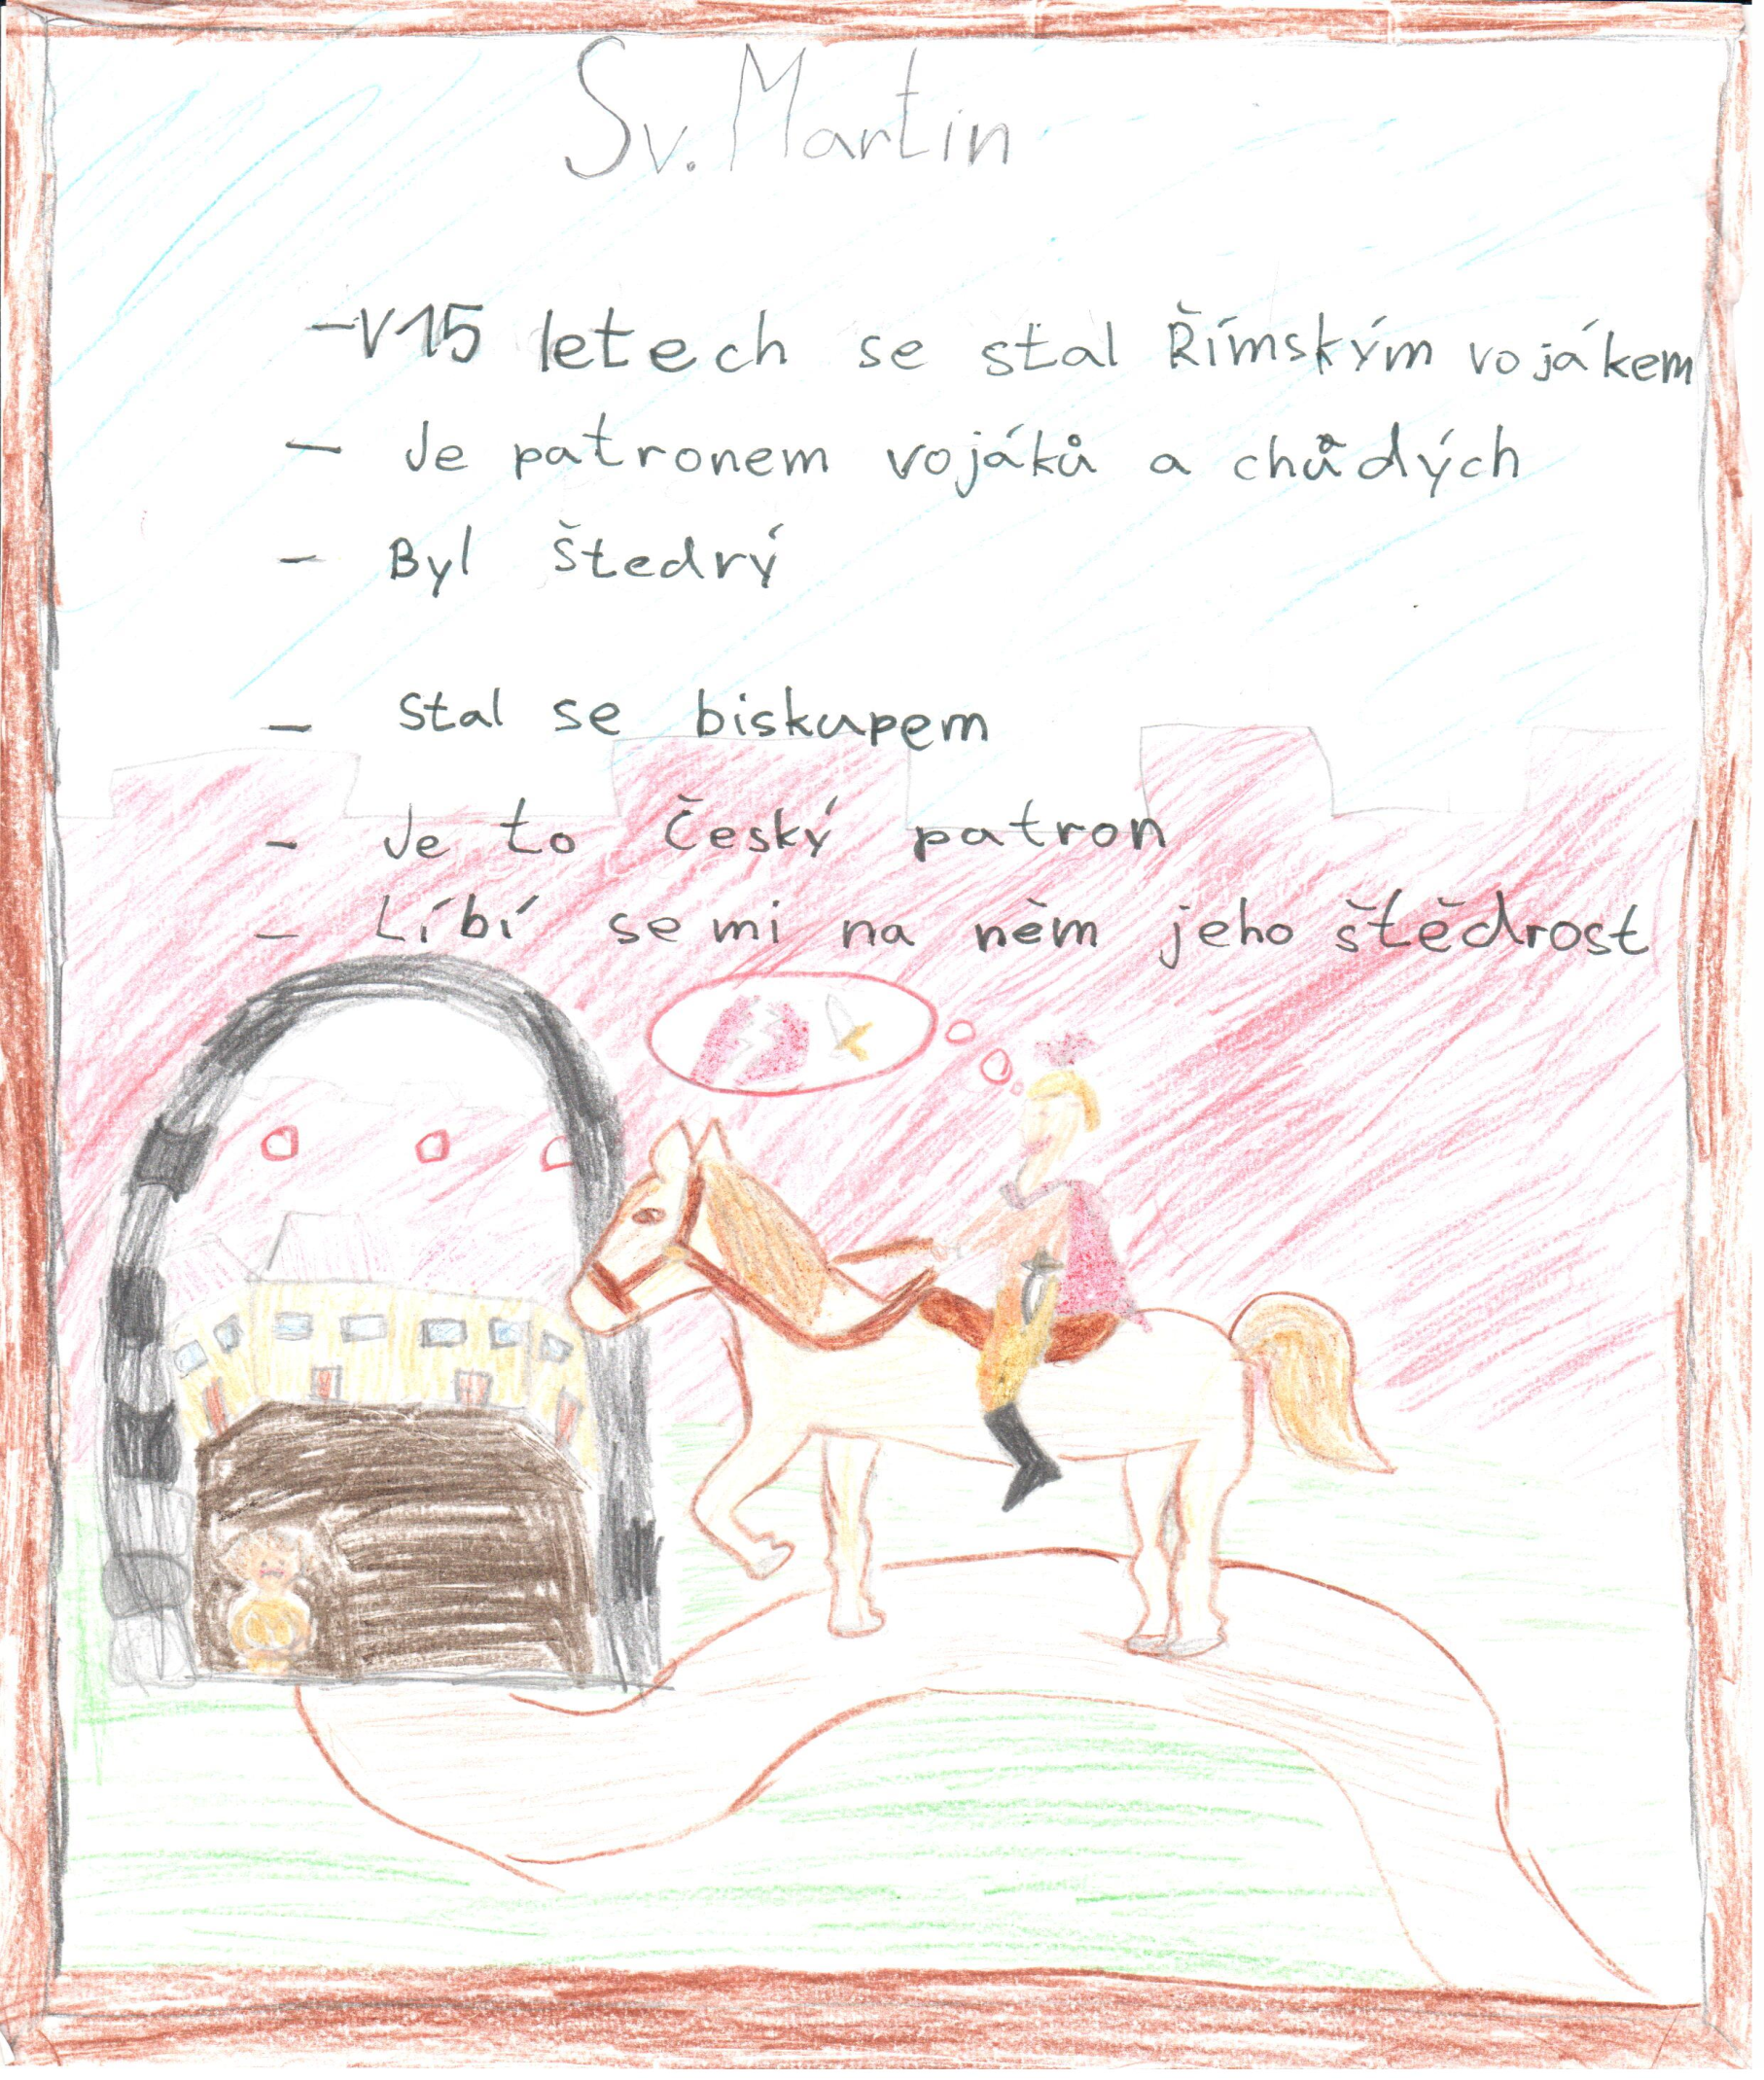 Sv. Martin
- V 15 letech se stal Římským vojákem
- Je patronem vojáků a chůdých
- Byl štedrý
- Stal se biskupem
- Je to Český patron
- Líbí se mi na něm jeho štědrost